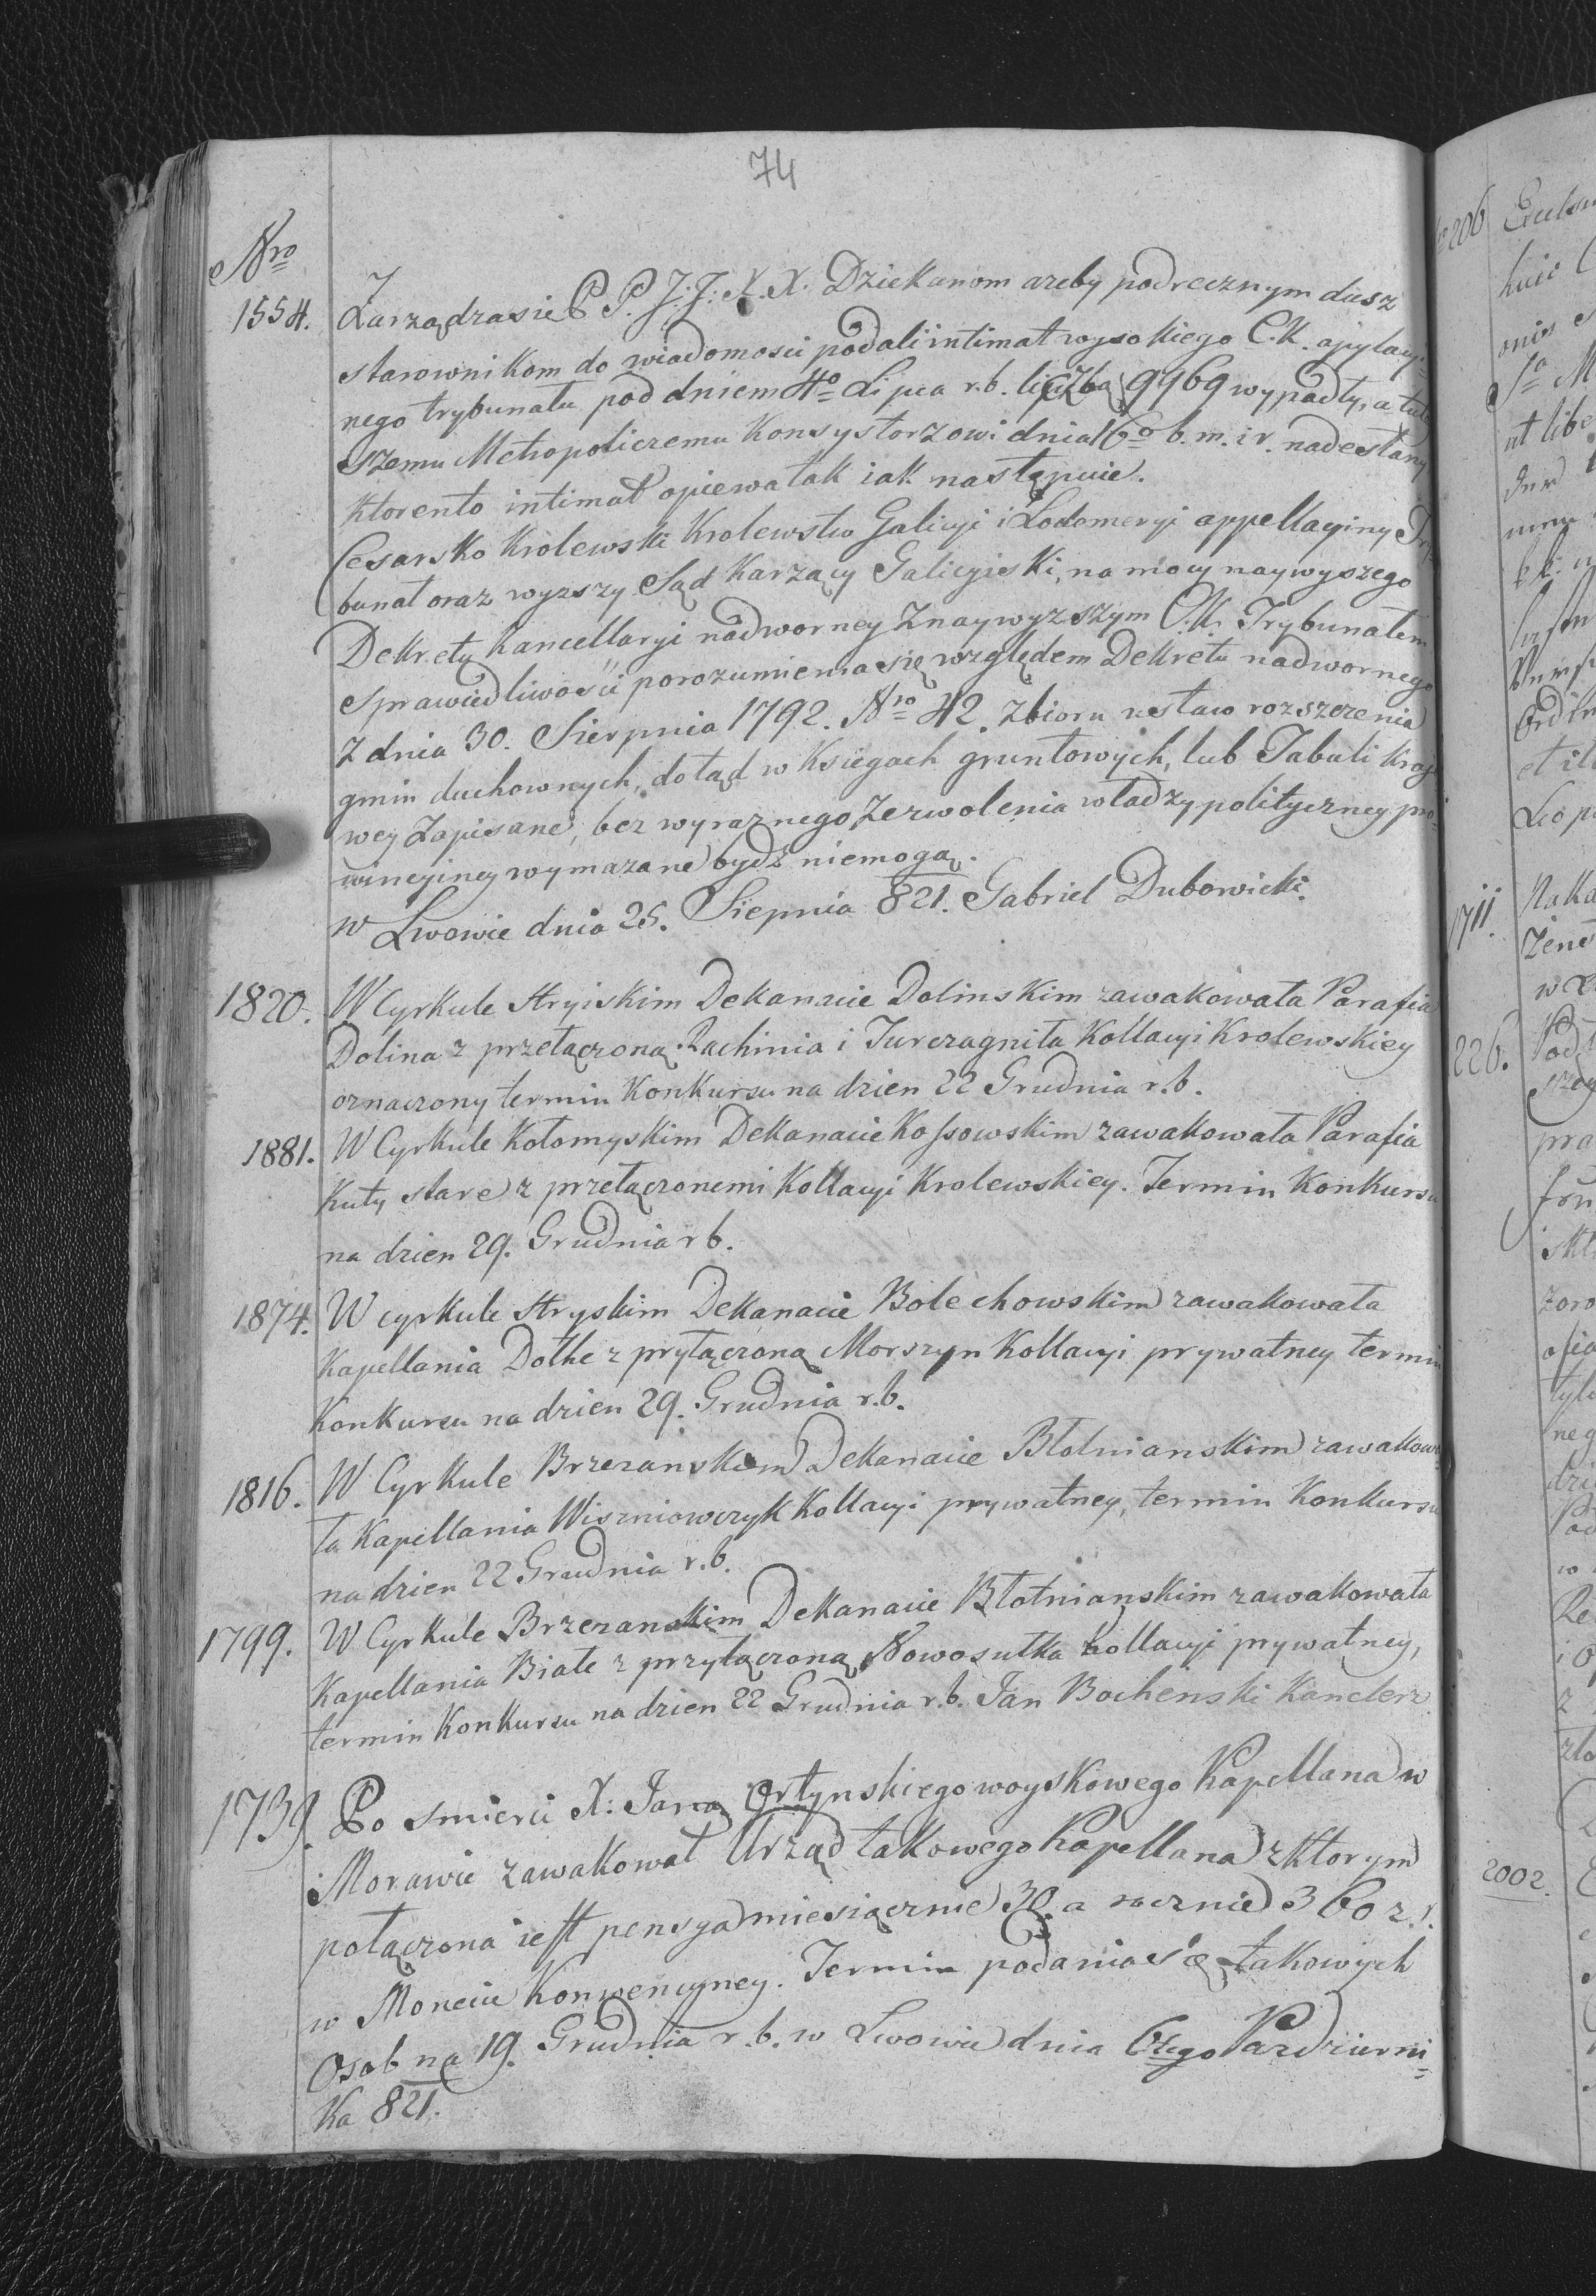 74
Nro
1554. Zarządza się P. P. J: J: X. X. Dziekanom azeby podrecznym dusz
starownikom do wiadomosci podali intimat wysokiego C. k. apylacy=
nego trybunatu pod dniem 4o Lipca r. b. liczba 9469 wypadły, a tutey
szemu Metropoliczemu Konsystorzowi dnia 16o b. m. i r. nadesłany
ktorento intimat opiewa tak iak następuie.
Cesarsko Krolewski Krolewstw Galicyi i Lodomeryi appellacyiny Try
bunat oraz wyzszy Sąd Karzący Galicyiski, na mocy naywyszego
Dekretu Kancellaryi nadworney z naywyzszym C. K. Trybunałem
sprawiedliwości porozumienia się względem Dekretu nadwornego
z dnia 30. Sierpnia 1792. Nro 42. zbioru ustaw rozszerzenia
gmin duchownych, dotąd w Księgach gruntowych, lub Tabuli kraio
wey Zapisane, bez wyraznego Zezwolenia władzy polityczney pro=
wincyiney wymazane bydź niemogą.
w Lwowie dnia 25. Siepnia 821. Gabriel Dubowicki.
1820. W Cyrkule Stryiskim Dekanacie Dolinskim zawakowata Parafia
Dolina z przełączoną Rachinia i Turczagniła Kollacyi Krolewskiey
oznaczony termin Konkursu na dzien 22 Grudnia r. b.
1881. W Cyrkule Kołomyskim Dekanacie Kossowskim zawakowata Parafia
Kuty stare z przełączonemi Kollacyi Krolewskiey. Termin Konkursu
na dzien 29. Grudnia r b.
1874. W cyrkule Stryskim Dekanacie Bolechowskim zawakowata
Kapellania Dołhe z pryłączoną Morszyn Kollacyi prywatney termin
Konkursu na dzien 29. Grudnia r. b.
1816. W Cyrkule Brzezanskim Dekanacie Błotnianskim zawakowa
ta Kapellania Wiszniowczyk Kollacyi prywatney, termin Konkursu
na dzien 22 Grudnia r. b.
1799. W Cyrkule Brzezanskim Dekanacie Błotnianskim zawakowata
Kapellania Białe z przyłączoną Nowosułka Kollacyi prywatney,
termin Konkursu na dzien 22 Grudnia r. b. Jan Bochenski Kanclerz
1739. Po smierci X: Jana Ortynskiego woyskowego Kapellana w
Morawie zawakował Urząd takowego Kapellana z ktorym
połączona iest pensya miesiącznie 30. a rocznie 360 z. r.
w Monecie Konwencyney. Termin podania się takowych
Osob na 19. Grudnia r. b. w Lwowie dnia 6tego Pazdzierni=
ka 821.
1711.
226.
2002.